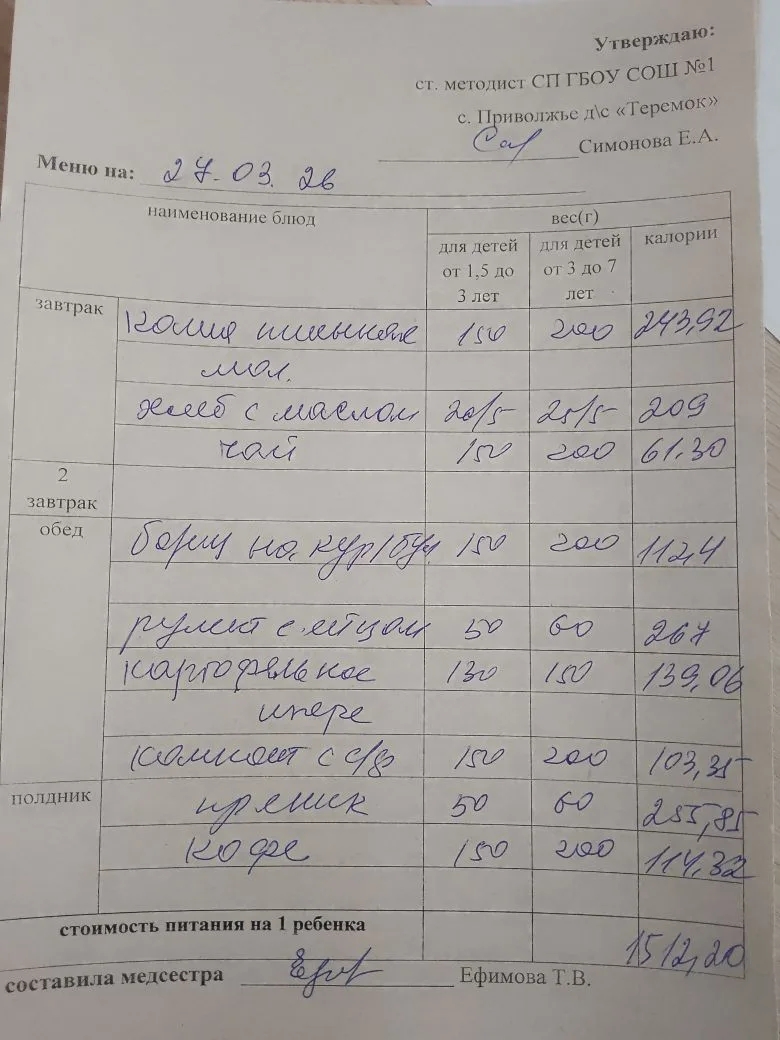 Утверждаю:
ст. методист СП ГБОУ СОШ №1
с. Приволжье д\с «Теремок»
Симонова Е.А.
Меню на: 27.03.26
наименование блюд вес(г)
для детей от 1,5 до 3 лет для детей от 3 до 7 лет калории
завтрак Каша пшенная 150 200 243,92
мол.
хлеб с маслом 20/5 25/5 209
чай 150 200 61.30
2 завтрак
обед борщ на кур/бул 150 200 112,4
рулет с яйцом 50 60 267
картофельное 130 150 139,06
пюре
компот с с/ф 150 200 103,35
полдник пряник 50 60 255,85
кофе 150 200 114,32
стоимость питания на 1 ребенка 1512,20
составила медсестра Ефимова Т.В.